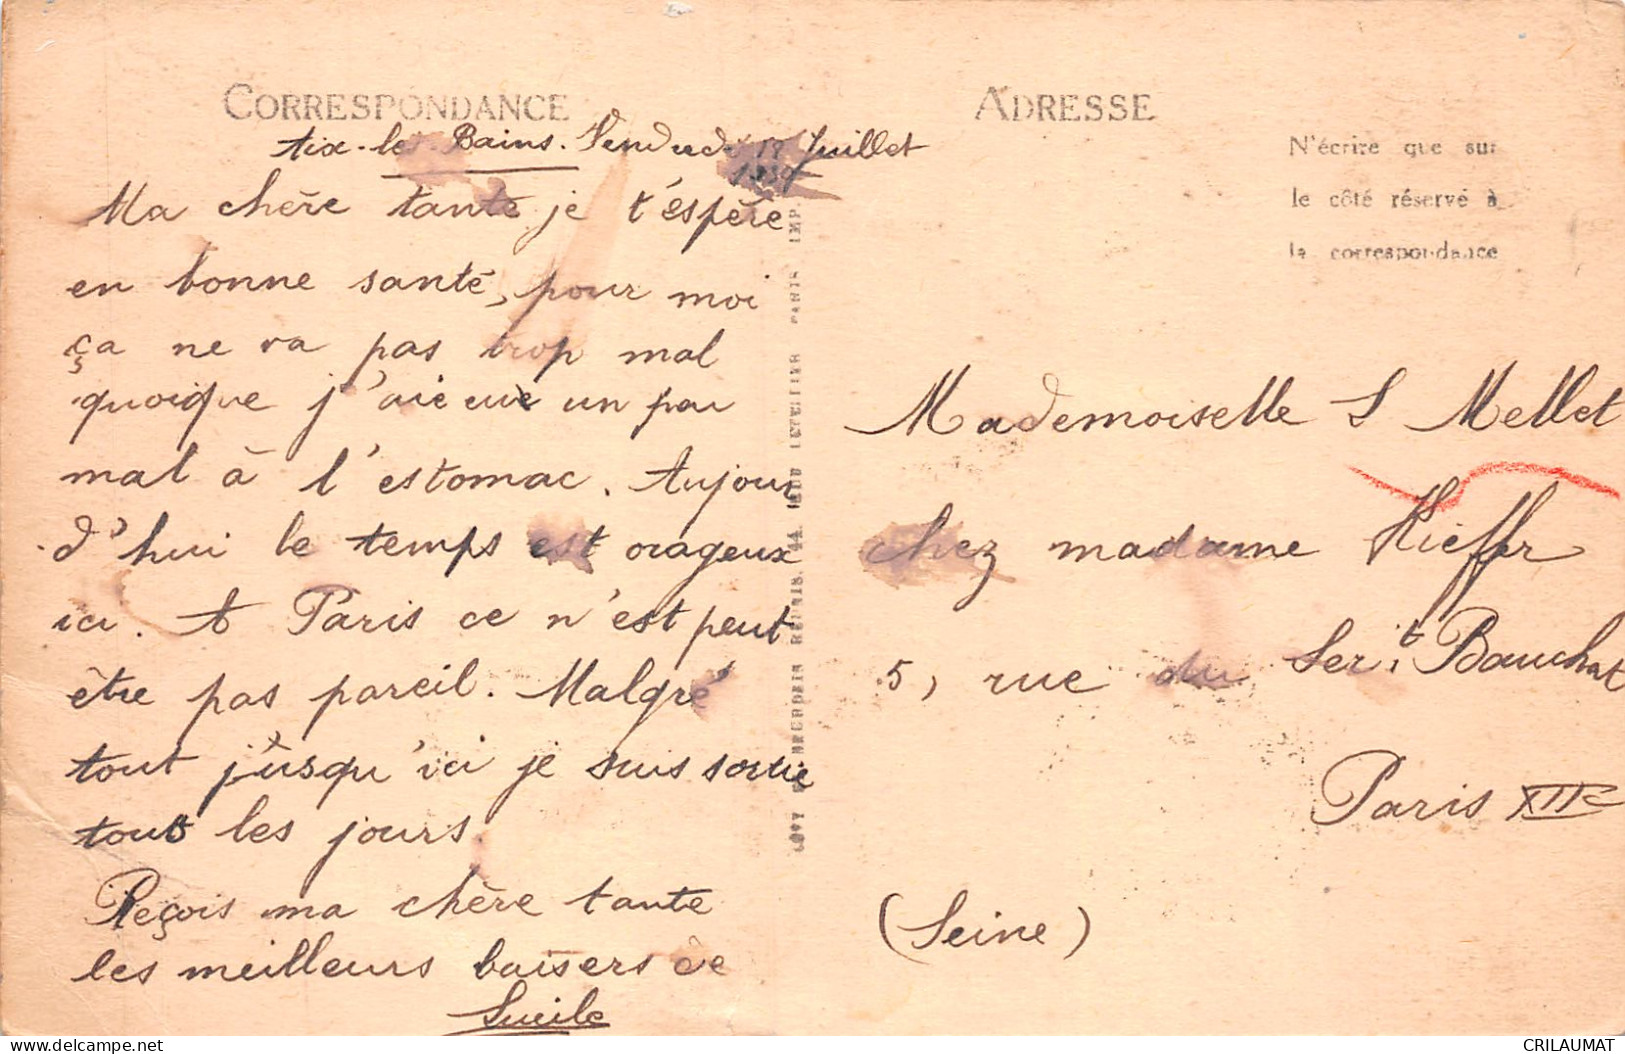 CORRESPONDANCE
Aix-les-Bains. Vendredi 18 Juillet
Ma chère tante je t'éspère
en bonne santé, pour moi
ça ne va pas trop mal
quoique j'aie eue un peu
mal à l'estomac. Aujour
d'hui le temps est orageux
ici. A Paris ce n'est peut
être pas pareil. Malgré
tout jusqu'ici je suis sortie
tout les jours.
Reçois ma chère tante
les meilleurs baisers de
ADRESSE
N'écrire que sur
le côté réservé à
la correspondance
Mademoiselle S Mellet
chez madame Kieffer
5, rue du Sert. Bauchat
Paris XIIe
(Seine)
PARIS IMP.
CRILAUMAT